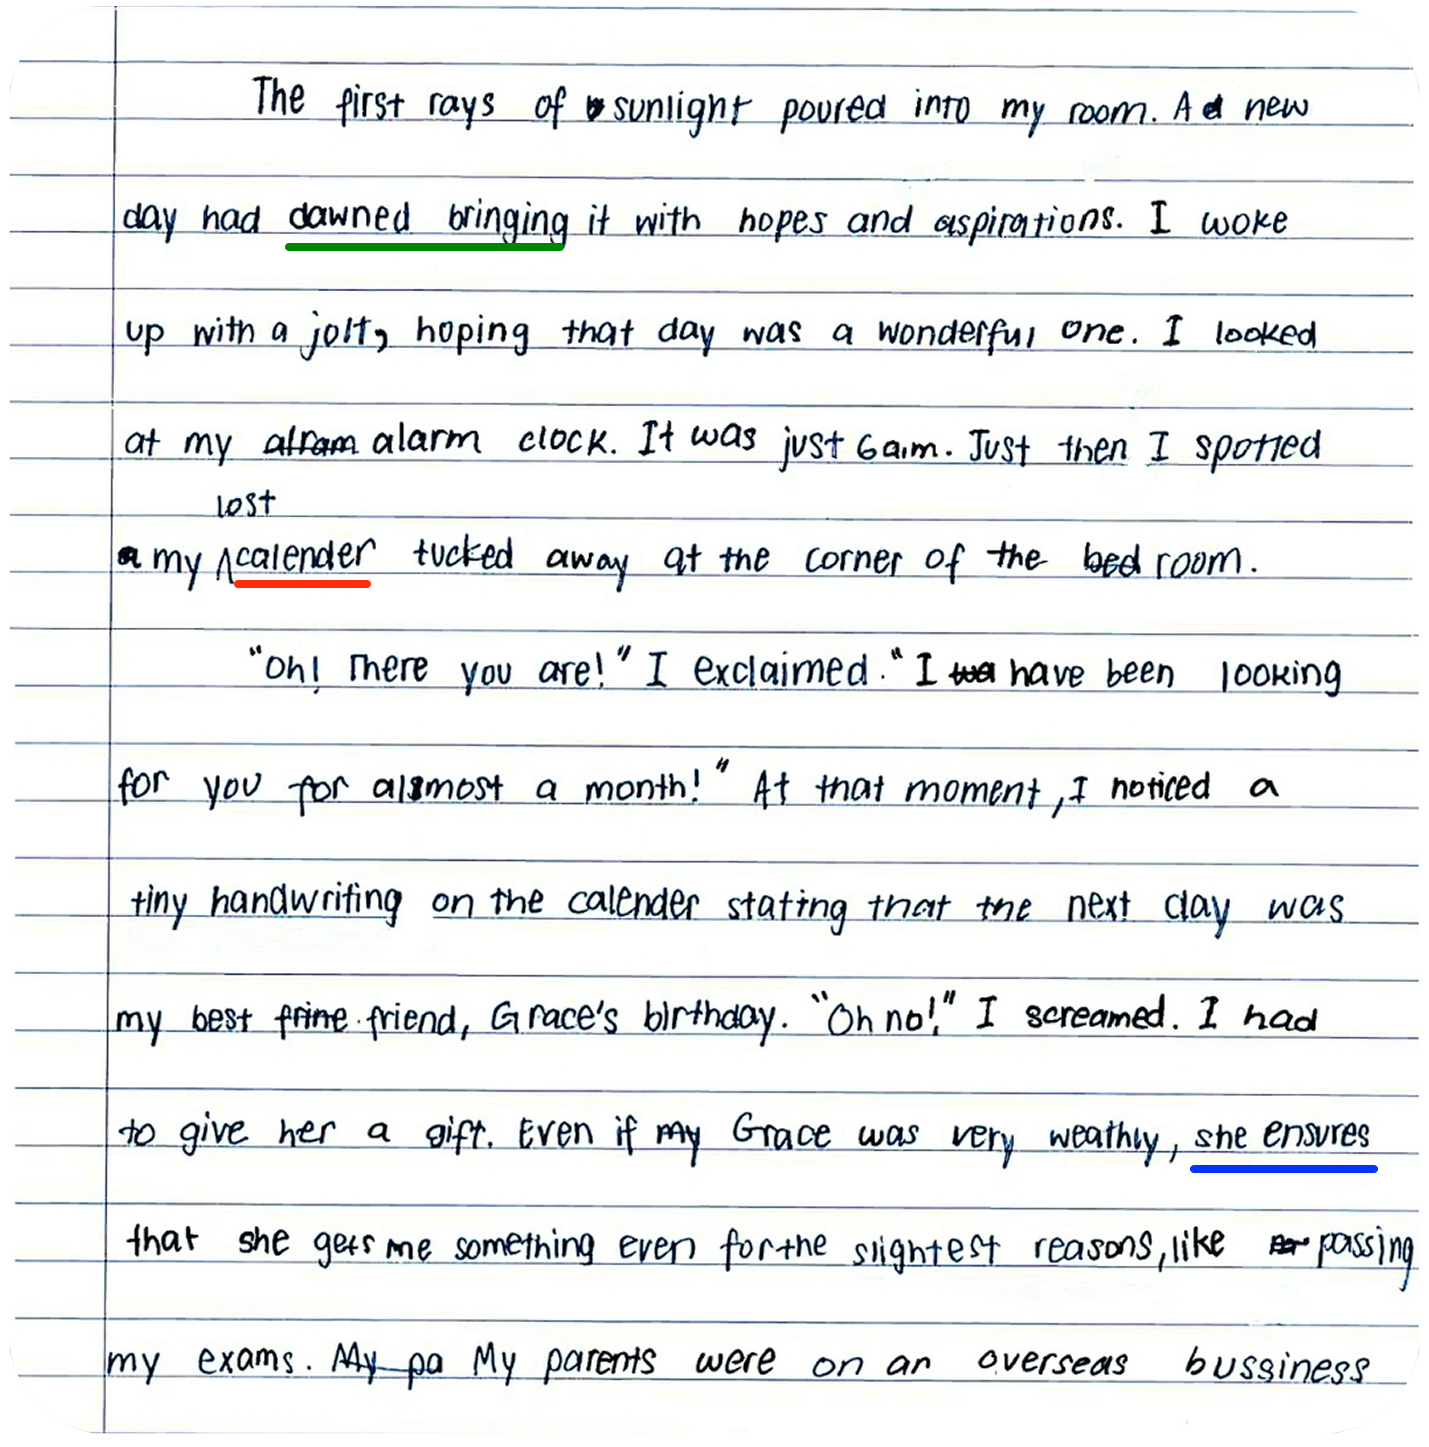 The first rays of sunlight poured into my room. A new
day had dawned bringing it with hopes and aspirations. I woke
up with a jolt, hoping that day was a wonderful one. I looked
at my alram alarm clock. It was just 6a.m. Just then I spotted
lost
a my ^calender tucked away at the corner of the bed room.
"Oh! There you are!" I exclaimed. "I wa have been looking
for you for almost a month!" At that moment, I noticed a
tiny handwriting on the calender stating that the next day was
my best frine friend, Grace's birthday. "Oh no!," I screamed. I had
to give her a gift. Even if my Grace was very weathly, she ensures
that she gets me something even for the slightest reasons, like passing
my exams. My pa My parents were on an overseas bussiness